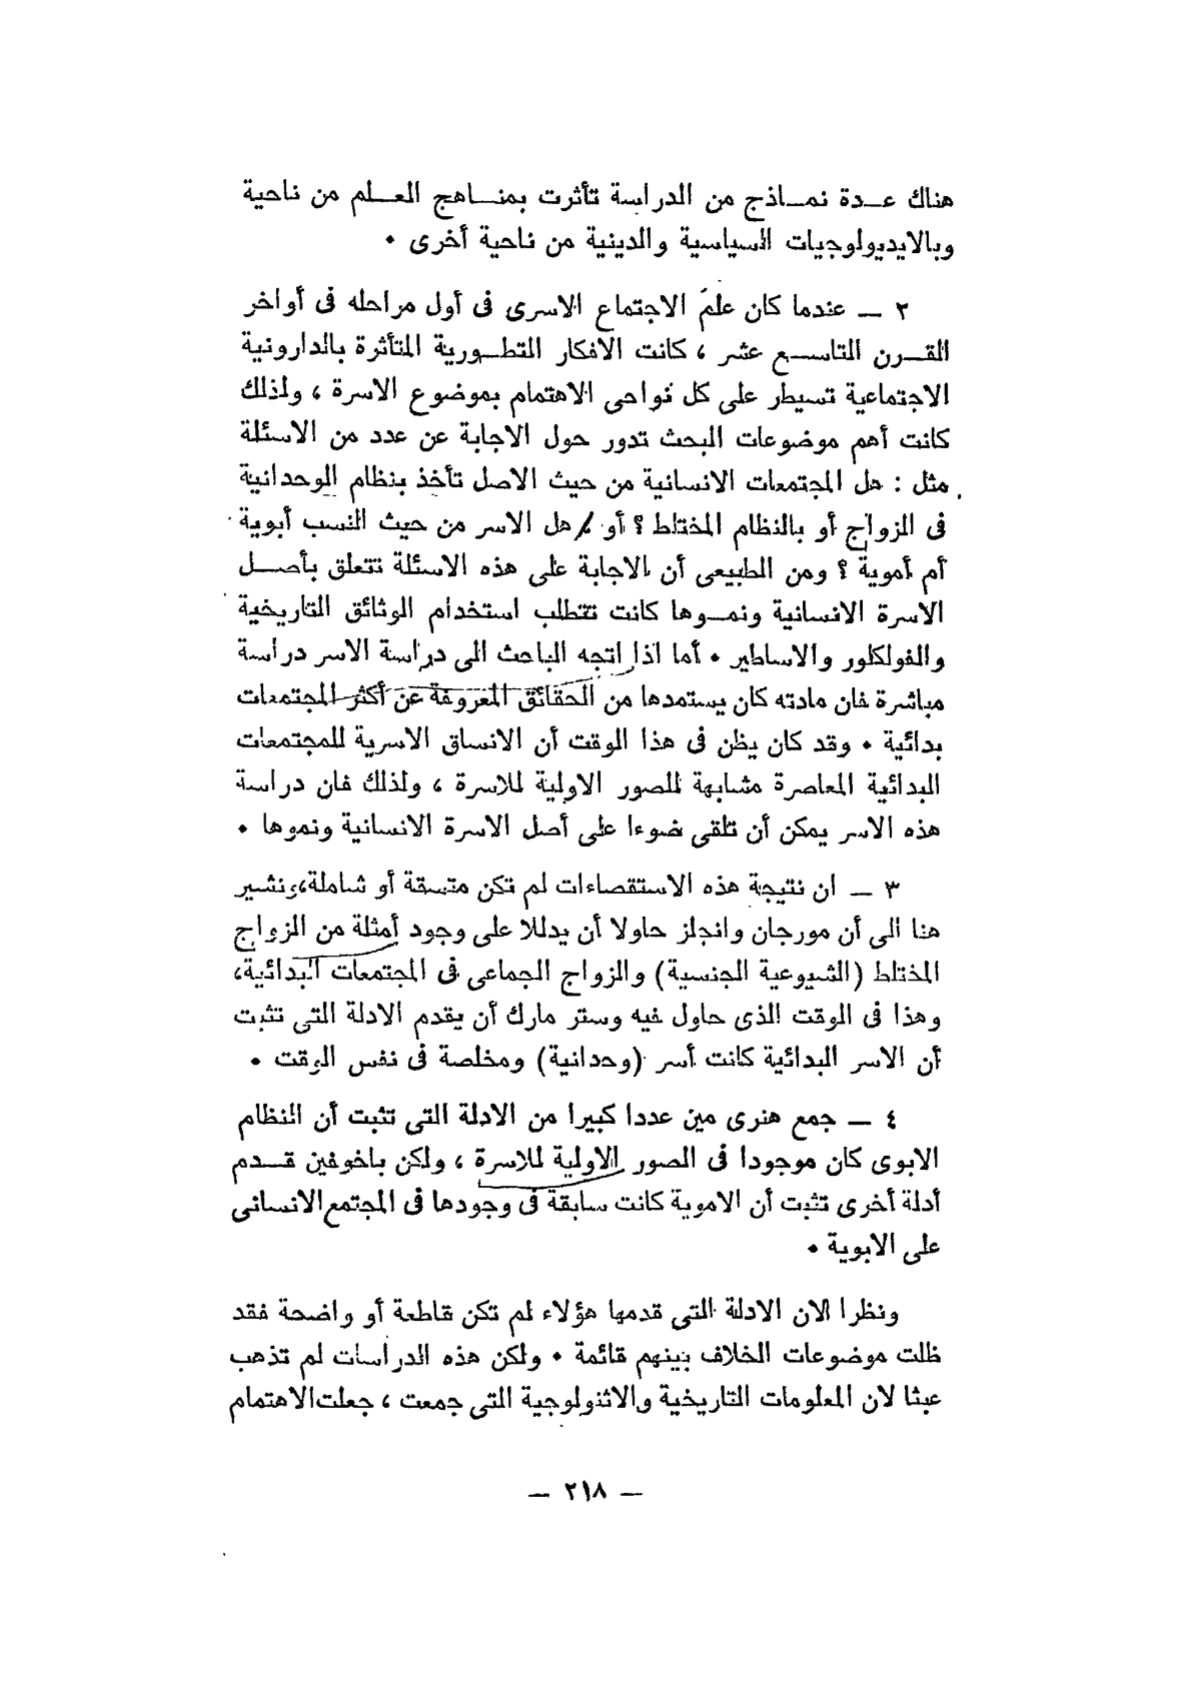 هناك عــدة نمــاذج من الدراسة تأثرت بمنــاهج العــلم من ناحية
وبالايديولوجيات السياسية والدينية من ناحية أخرى •
٢ — عندما كان علم الاجتماع الاسرى فى أول مراحله فى أواخر
القــرن التاســع عشر ، كانت الافكار التطــورية المتأثرة بالدارونية
الاجتماعية تسيطر على كل نواحى الاهتمام بموضوع الاسرة ، ولذلك
كانت أهم موضوعات البحث تدور حول الاجابة عن عدد من الاسئلة
مثل : هل المجتمعات الانسانية من حيث الاصل تأخذ بنظام الوحدانية
فى الزواج أو بالنظام المختلط ؟ أو / هل الاسر من حيث النسب أبوية
أم أموية ؟ ومن الطبيعى أن الاجابة على هذه الاسئلة تتعلق بأصــل
الاسرة الانسانية ونمــوها كانت تتطلب استخدام الوثائق التاريخية
والفولكلور والاساطير • أما اذا اتجه الباحث الى دراسة الاسر دراسة
مباشرة فان مادته كان يستمدها من الحقائق المعروفة عن أكثر المجتمعات
بدائية • وقد كان يظن فى هذا الوقت أن الانساق الاسرية للمجتمعات
البدائية المعاصرة مشابهة للصور الاولية للاسرة ، ولذلك فان دراسة
هذه الاسر يمكن أن تلقى ضوءا على أصل الاسرة الانسانية ونموها •
٣ — ان نتيجة هذه الاستقصاءات لم تكن متسقة أو شاملة، ونشير
هنا الى أن مورجان وانجلز حاولا أن يدللا على وجود أمثلة من الزواج
المختلط (الشيوعية الجنسية) والزواج الجماعى فى المجتمعات البدائية،
وهذا فى الوقت الذى حاول فيه وستر مارك أن يقدم الادلة التى تثبت
أن الاسر البدائية كانت أسر (وحدانية) ومخلصة فى نفس الوقت •
٤ — جمع هنرى مين عددا كبيرا من الادلة التى تثبت أن النظام
الابوى كان موجودا فى الصور الاولية للاسرة ، ولكن باخوفين قــدم
أدلة أخرى تثبت أن الاموية كانت سابقة فى وجودها فى المجتمع الانسانى
على الابوية •
ونظرا الان الادلة التى قدمها هؤلاء لم تكن قاطعة أو واضحة فقد
ظلت موضوعات الخلاف بينهم قائمة • ولكن هذه الدراسات لم تذهب
عبثا لان المعلومات التاريخية والاثنولوجية التى جمعت ، جعلت الاهتمام
— ٢١٨ —